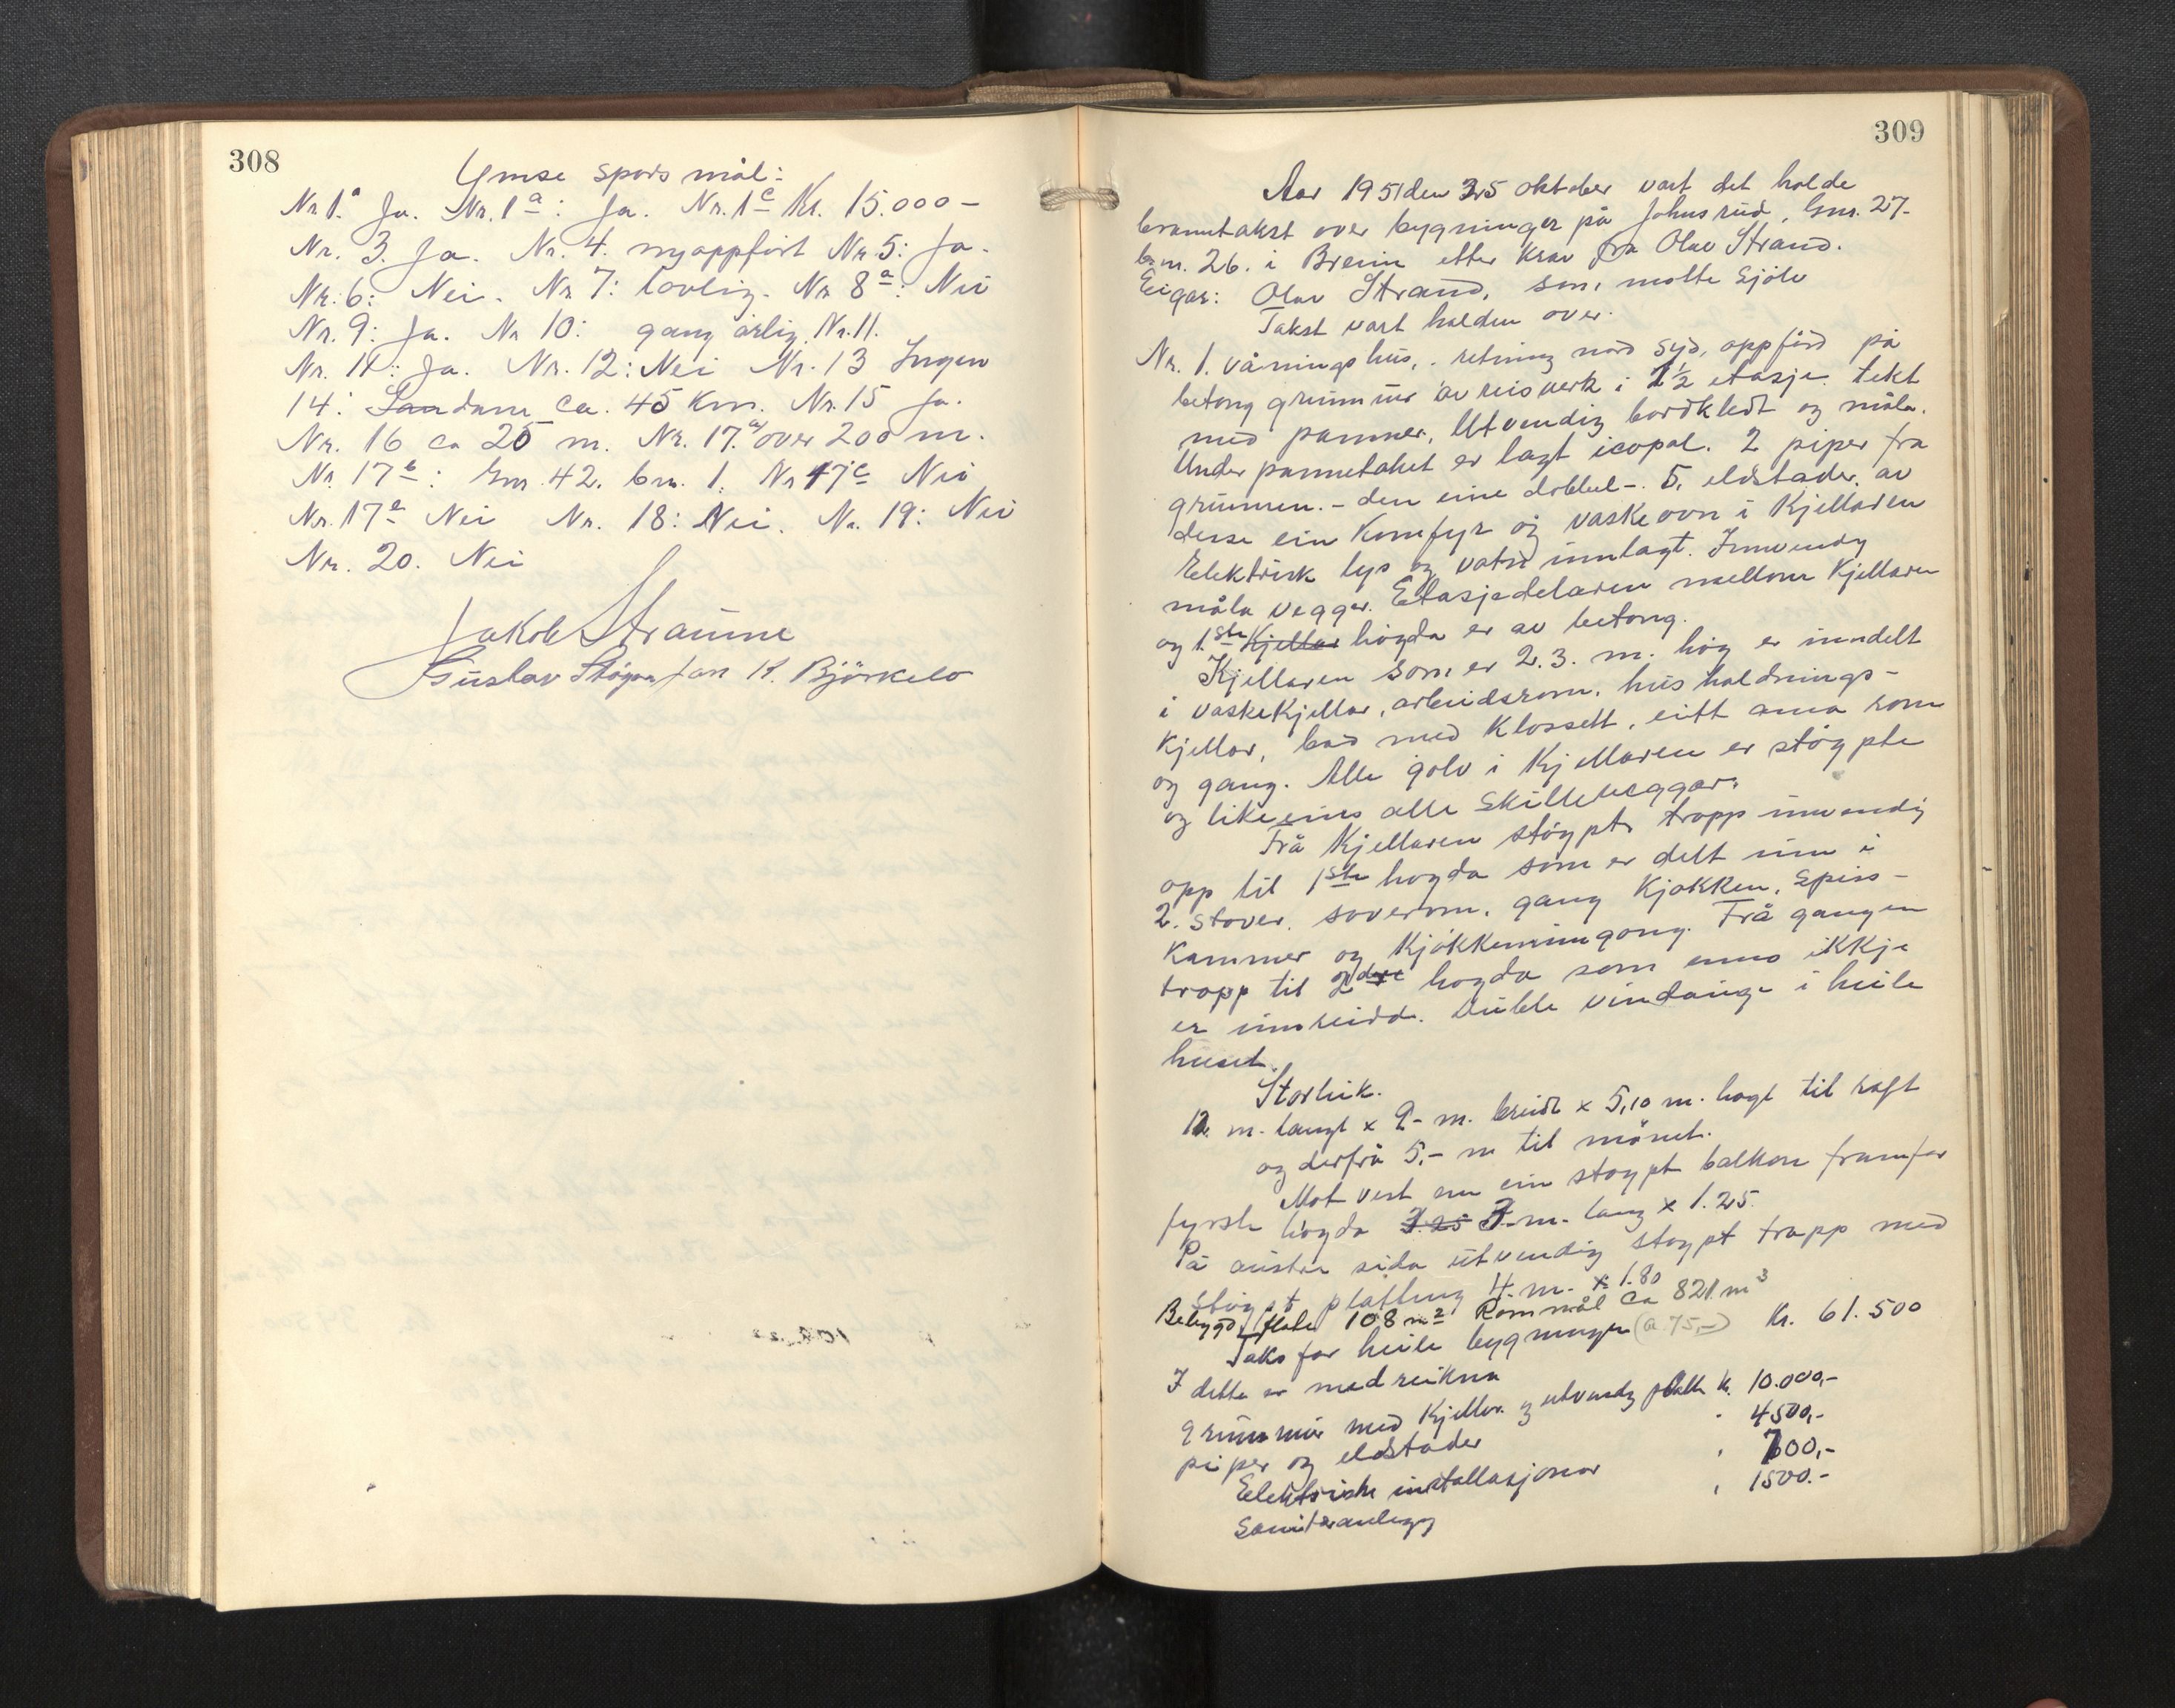 308
Ymse spors mål:
Nr 1.a Ja. Nr. 1a: Ja. Nr. 1c Kr. 15.000 –
Nr. 3. Ja. Nr. 4. nyoppfört Nr. 5: Ja.
Nr. 6: Nei. Nr 7: lovlig. Nr 8a: Nei
Nr. 9: Ja. Nr 10: gang årlig. Nr. 11.
Nr. 11: Ja. Nr. 12: Nei Nr. 13 Ingen
14: Sandane ca. 45 Km. Nr. 15 Ja.
Nr. 16 ca 25 m. Nr. 17.a) over 200 m.
Nr. 17b: Gnr. 42. bnr. 1. Nr 17c Nei
Nr. 17e Nei Nr. 18: Nei. Nr. 19: Nei
Nr. 20. Nei
Jakob Straume
Gustav Støyva Jan K. Björkelo
309
Aar 1951 den 25 oktober vart det halde
branntakst over bygninger på Johusrud, Gnr. 27-
bnr. 26. i Breim etter krav fra Olav Strand.
Eigar: Olav Strand, som motte sjölv
Takst vart halden over.
Nr. 1. våningshus, retning nord syd, oppförd på
betong grunnmur av reisverk i 1½ etasje. tekt
med panner. Utvendig bordkledt og måla.
Under pannetaket er lagt icopal. 2 piper fra
grunnen. – den eine dobbel –. 5. eldstader. av
desse ein Komfyr og vaskeovn i Kjellaren
Elektrisk lys og vatn innlagt. Innvendig
måla vegger. Etasjedelaren mellom Kjellaren
og 1.ste Kjellar högda er av betong.
Kjellaren som er 2.3. m. hög er inndelt
i vaskekjellar, arbeidsrom. hus haldnings-
Kjellar, bad med Klossett, eitt anna rom
og gang. Alle golv i Kjellaren er stöypte
og likeeins alle skilleveggar.
Frå Kjellaren stöypt tropp innvendig
opp til 1ste hogda som er delt inn i
2. stover. soverom. gang Kjøkken. Spiss-
Kammer og Kjökkeninngong. Frå gangen
tropp til 2dre hogda som enno ikkje
er innreidd. Duble vindauge i heile
huset.
Storleik.
12. m. langt x 9- m. breidt x 5,10 m. hogt til raft
og derfrå 5,- m til mönet.
Mot vest en ein stoypt balkon framfor
fyrste högda 3.25 7 m. lang x 1.25.
På austre sida utvendig stoypt trapp med
stöypt platting 4 m. x 1.80
Bebygd flate 108 m2 Rommål ca 821 m3
Taks for heile bygningen (a 75,-) Kr. 61.500
I dette er medreikna
grunnmur med Kjellar og utvendig platt Kr. 10.000,-
piper og eldstader " 4500,-
Elektriske installasjonar " 700,-
Saniteranlegg " 1500.-